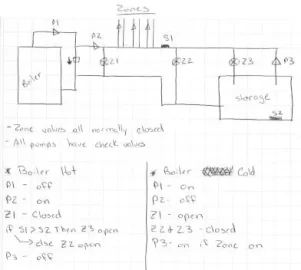 Zones
P1
P2
S1
Z1
Z2
Z3
P3
Boiler
storage
S2
- Zone valves all normally closed
- All pumps have check valves
* Boiler Hot
P1 - off
P2 - on
Z1 - Closed
if S1 > S2 Then Z3 open
else Z2 open
P3 - off
* Boiler Cold
P1 - on
P2 - off
Z1 - open
Z2 + Z3 - closed
P3 - on if Zone on